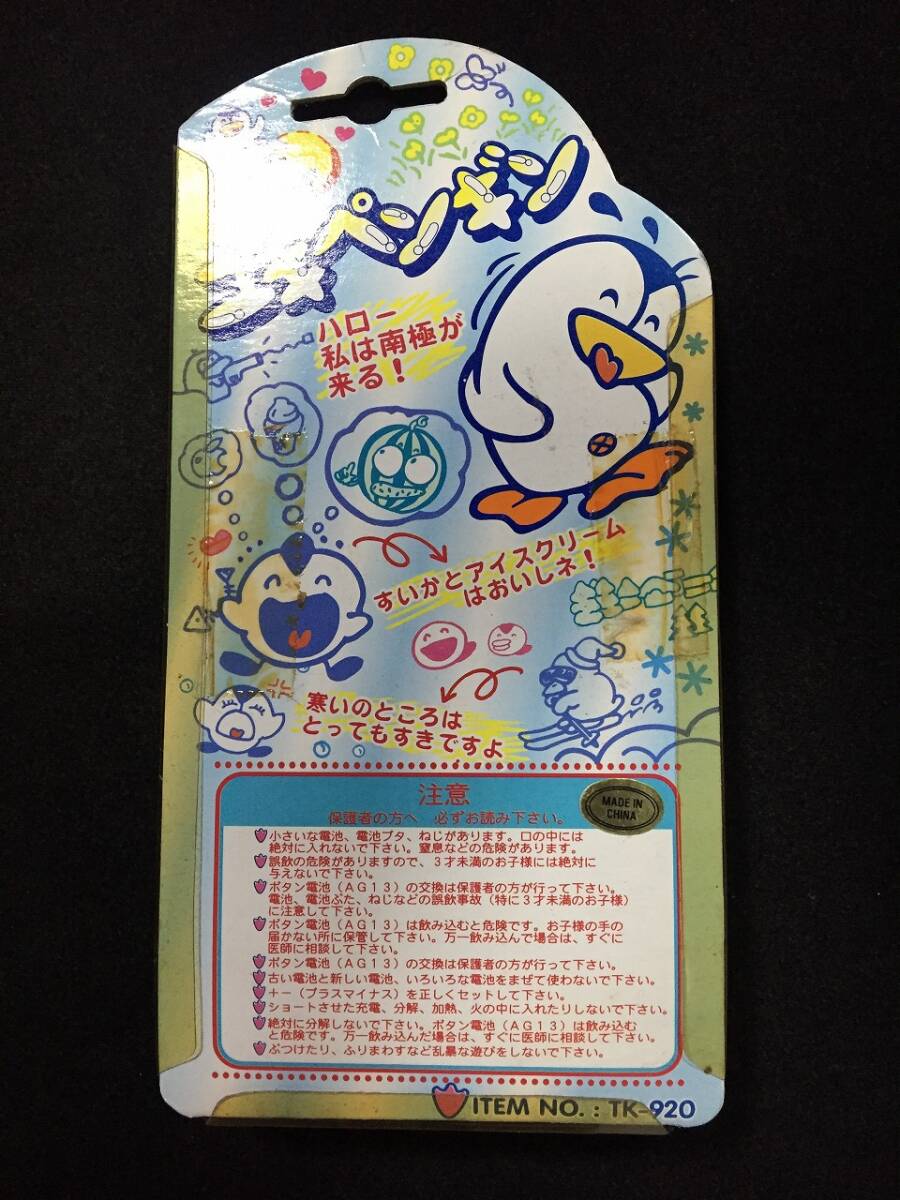 ペンギン
ハロー
私は南極が
来る！
すいかとアイスクリーム
はおいしネ！
寒いのところは
とってもすきですよ
注意
保護者の方へ 必ずお読み下さい。
MADE IN
CHINA
小さいな電池、電池ブタ、ねじがあります。口の中には
絶対に入れないで下さい。窒息などの危険があります。
誤飲の危険がありますので、３才未満のお子様には絶対に
与えないで下さい。
ボタン電池（ＡＧ１３）の交換は保護者の方が行って下さい。
電池、電池ぶた、ねじなどの誤飲事故（特に３才未満のお子様）
に注意して下さい。
ボタン電池（ＡＧ１３）は飲み込むと危険です。お子様の手の
届かない所に保管して下さい。万一飲み込んで場合は、すぐに
医師に相談して下さい。
ボタン電池（ＡＧ１３）の交換は保護者の方が行って下さい。
古い電池と新しい電池、いろいろな電池をまぜて使わないで下さい。
＋－（プラスマイナス）を正しくセットして下さい。
ショートさせた充電、分解、加熱、火の中に入れたりしないで下さい。
絶対に分解しないで下さい。ボタン電池（ＡＧ１３）は飲み込む
と危険です。万一飲み込んだ場合は、すぐに医師に相談して下さい。
ぶつけたり、ふりまわすなど乱暴な遊びをしないで下さい。
ITEM NO. : TK-920